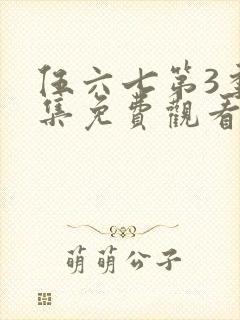 伍六七第3季
集免費觀看
萌萌公子